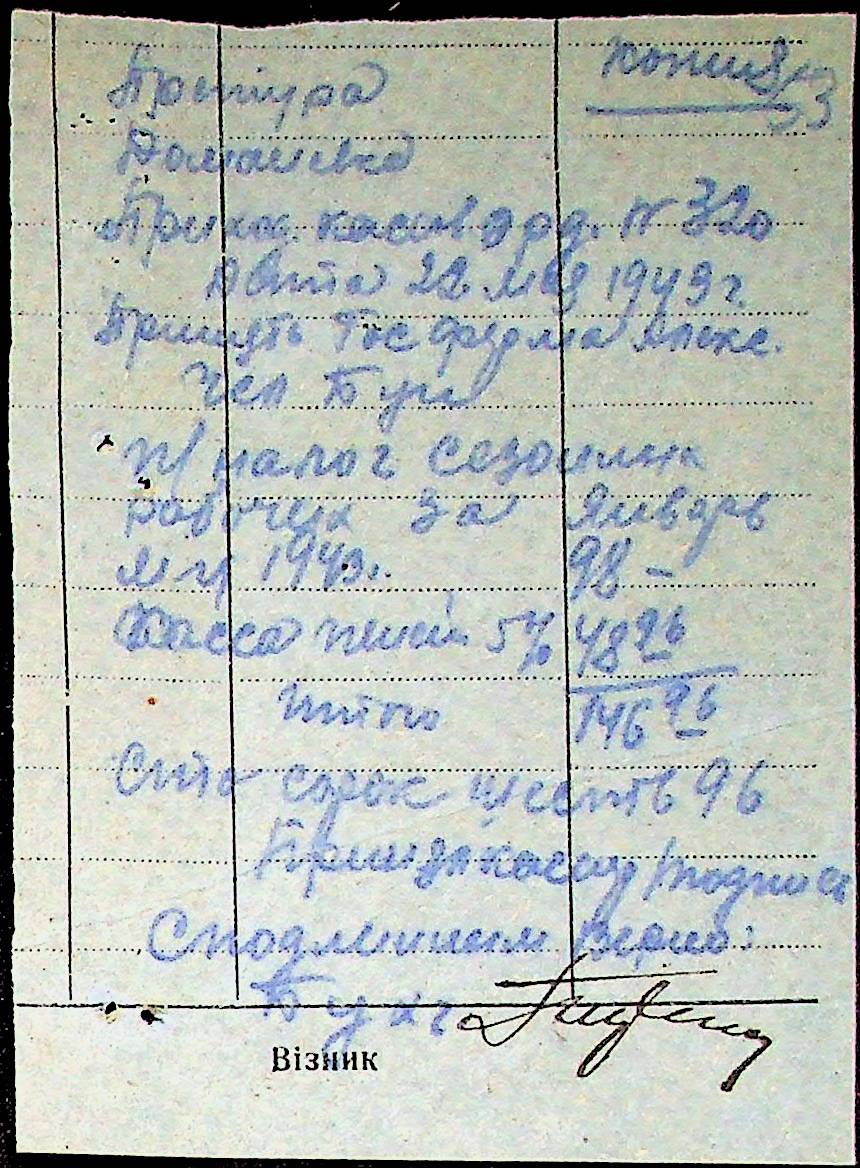 Копия
53
Претура
Домашевка
Приход. касов орд. № 320
Дата 22 мая 1943 г.
Принять Гос ферма Алекс.
Буг
п/налог сезонных
рабочих за Январь
м-ц 1943 г. 98 –
Касса пенсии 5% 48 96
Итого 146 96
Сто сорок шесть 96
Принял кассир /подпись
С подлинным верно:
Бухг
Візник